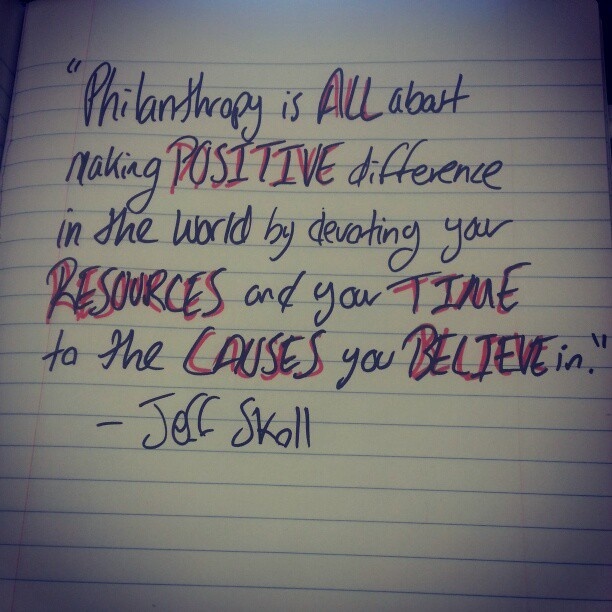 "Philanthropy is ALL about
making POSITIVE difference
in the world by devoting your
RESOURCES and your TIME
to the CAUSES you BELIEVE in."
- Jeff Skoll